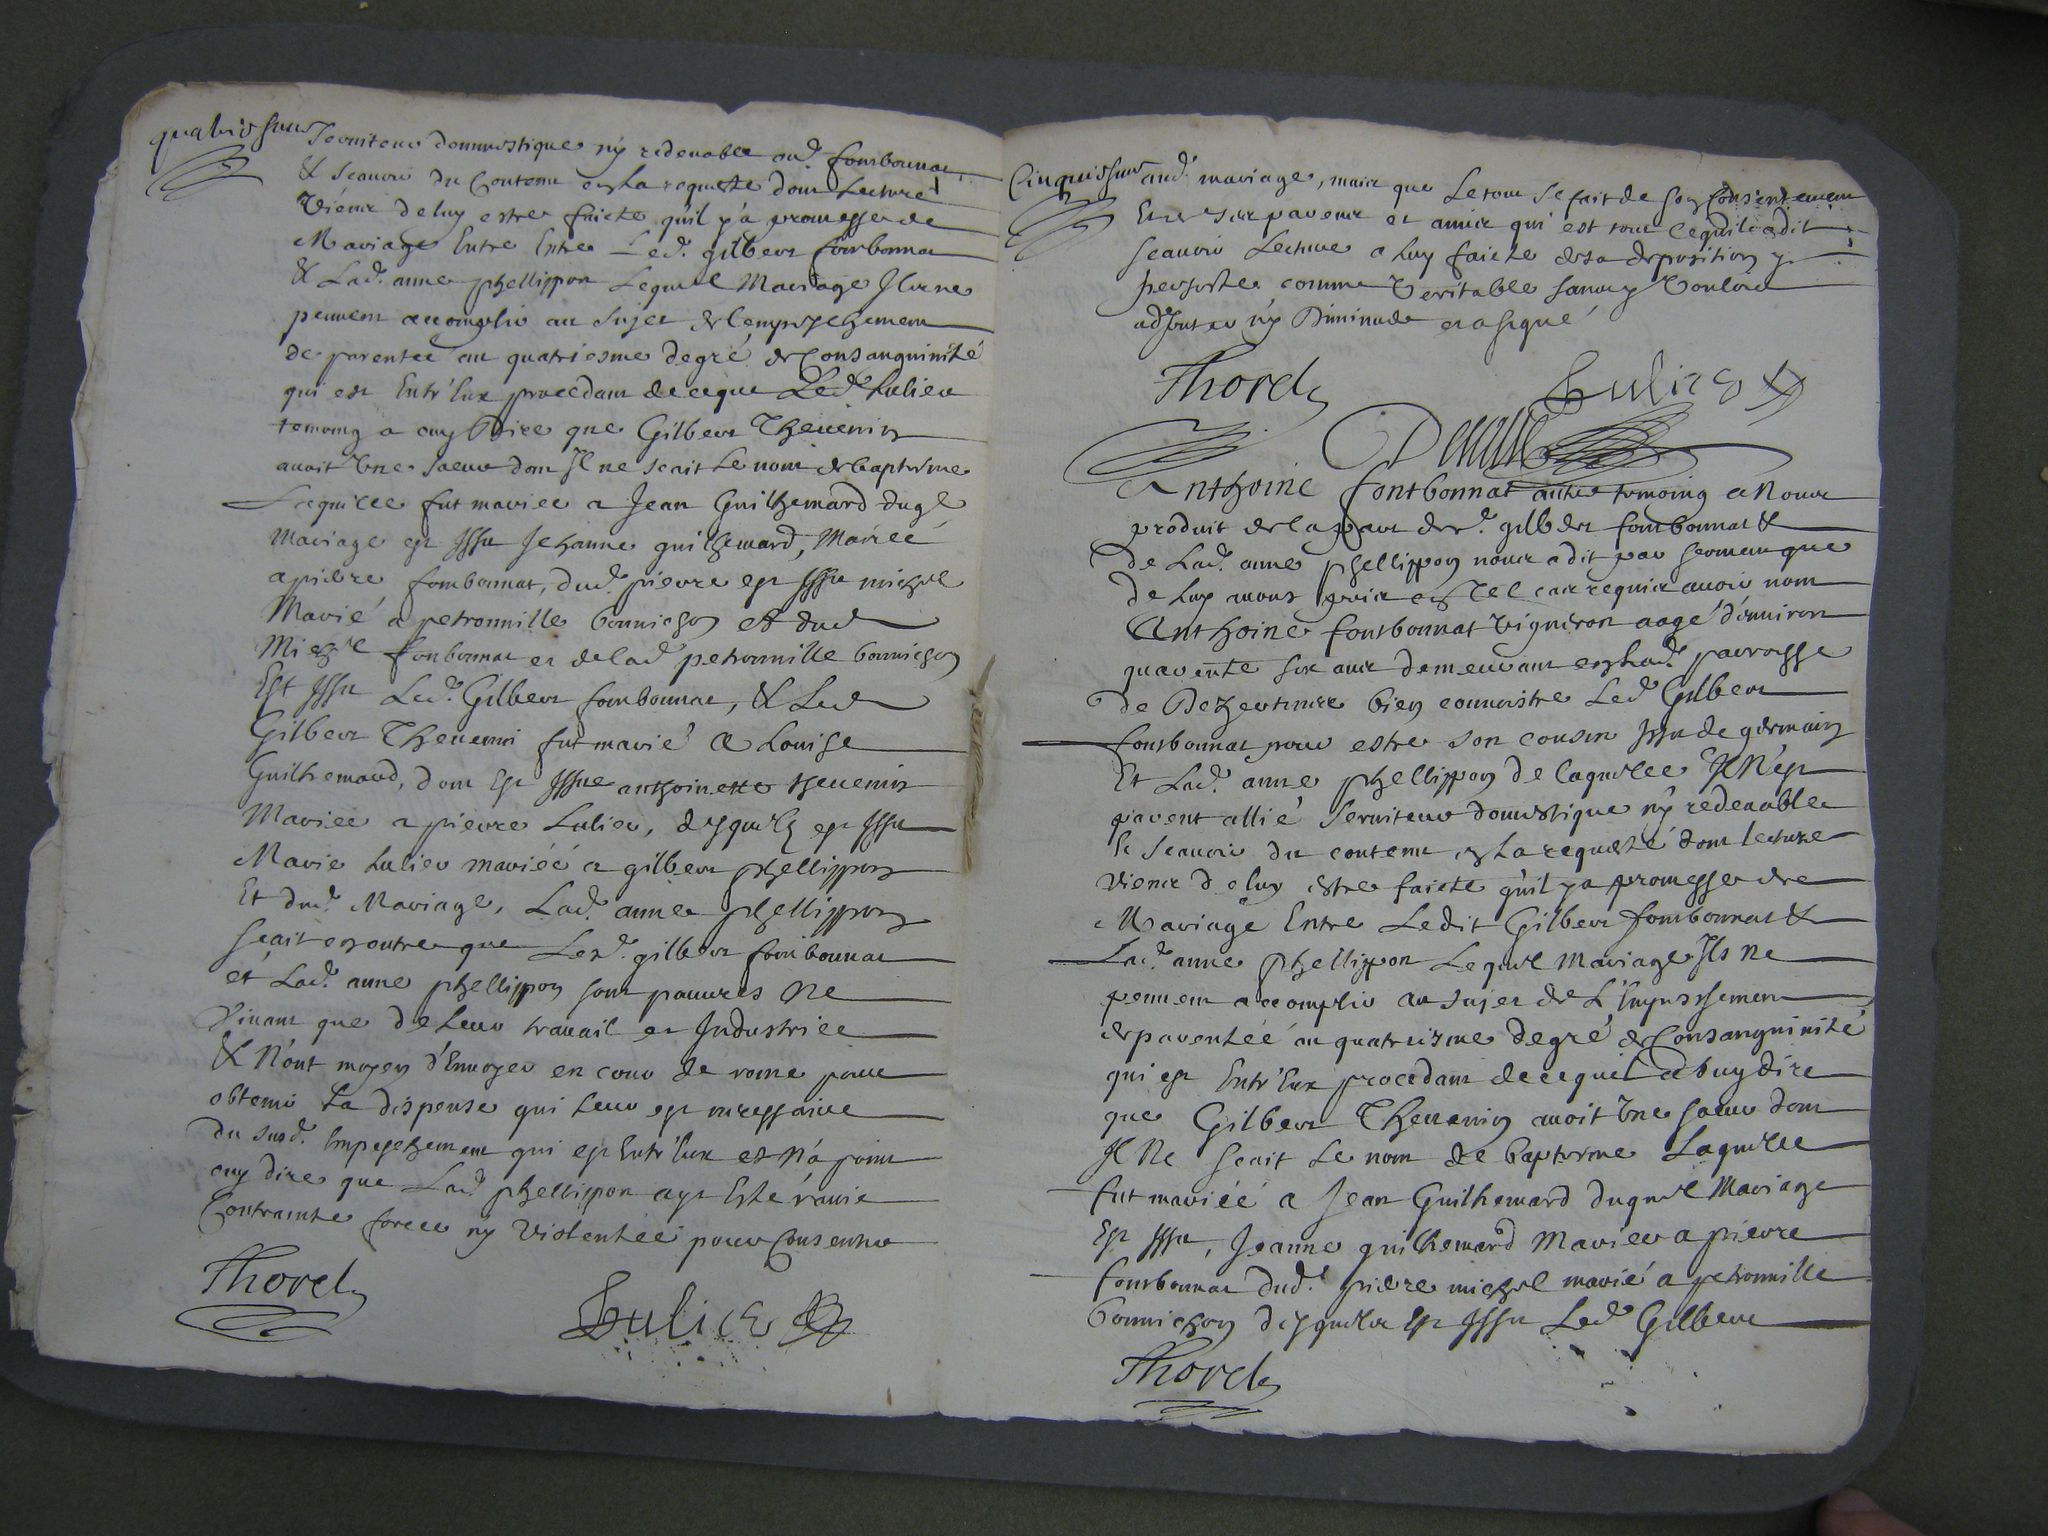 quatriesme
serviteur dommestique ny redevable aud. fontbonnat
& scavoir du Contenu en la requeste dont Lecture
Vient de luy estre faicte qu'il y a promesse de
Mariage Entre Entre Led. gilbert fontbonnat
& Lad. anne phellippon Lequel Mariage Ils ne
peuvent accomplir au sujet de lempeschement
de parenteé au quatriesme degré de Consanguinité
qui est Entr'Eux procedant de ce que Led. Lulier
temoing a ouy Dire que Gilbert Thevenin
avait Une Soeur dont Il ne scait Le nom de baptesme
Laquelle fut mariee a Jean Guilhemard duql
Mariage est Issu Jehanne guilhemard, Mariéé
a pierre fontbonnat, dud. pierre est Issu michel
Marié a petronnille bonnichon et dud.
Michel fonbonnat et de lad. petronnille bonnichon
Est Issu Led. Gilbert fontbonnat, & Led.
Gilbert Thevenin fut marié a Louise
Guilhemard, dont Est Issue anthoinette thevenin
Mariee a pierre Lulier, desquels est Issu
Marie Lulier mariéé a gilbert phellippon
Et dud. Mariage, Lad. anne phellippon
scait en outre que Lesd. gilbert fontbonnat
et Lad. anne phellippon sont pauvres ne
Vivant que de Leur travail et Industriee
& N'ont moyen d'Envoyer en cour de rome pour
obtenir La dispense qui Leur est necessaire
du susd. Empeschement qui est Entr'Eux et N'a point
ouy dire que Lad. phellippon ayt Esté ravie
Contrainte forcee ny Violentéé pour Consentir
Thorel
Lulier
Cinquiesme
aud. mariage, mais que Le tout se fait de son Consentement
Et de ses parents et amis qui est tout ce qu'il a dit
scavoir Lecture a luy faicte de sa deposition y
persiste comme Veritable sans y Vouloir
adjouter ny Diminuer et a signé
Thorel
Lulier
Anthoine fontbonnat autre temoing a Nous
produit de la part desd. gilbert fontbonnat &
de Lad. anne phellippon nous a dit par serment que
de luy avons pris en tel cas requis avoir nom
Anthoine fontbonnat vigneron aagé d'environ
quarente six ans demeurant en Lad. parroisse
de bien connoistre Led. Gilbert
fontbonnat pour estre son cousin Issu de germain
Et Lad. anne phellippon de laquelle Il N'est
parent allié Serviteur domestique ny redevable
& Scavoir du contenu en La requesté dont lecture
Vient de luy estre faicte qu'il y a promesse de
Mariage Entre Ledit Gilbert fontbonnat &
Lad. anne phellippon Lequel Mariage Ils Ne
peuvent accomplir au sujet de L'Empeschement
de parentéé au quatriesme degré de Consanguinité
qui est Entr'Eux procedant de ce quil a ouy dire
que Gilbert Thevenin avoit Une soeur dont
Il Ne scait Le nom de baptesme Laquelle
fut mariéé a Jean Guilhemard duquel Mariage
Est Issu, Jeanne guilhemard Mariee a pierre
fontbonnat dud. pierre michel marié a petronnille
bonnichon desquels Est Issu Led. Gilbert
Thorel